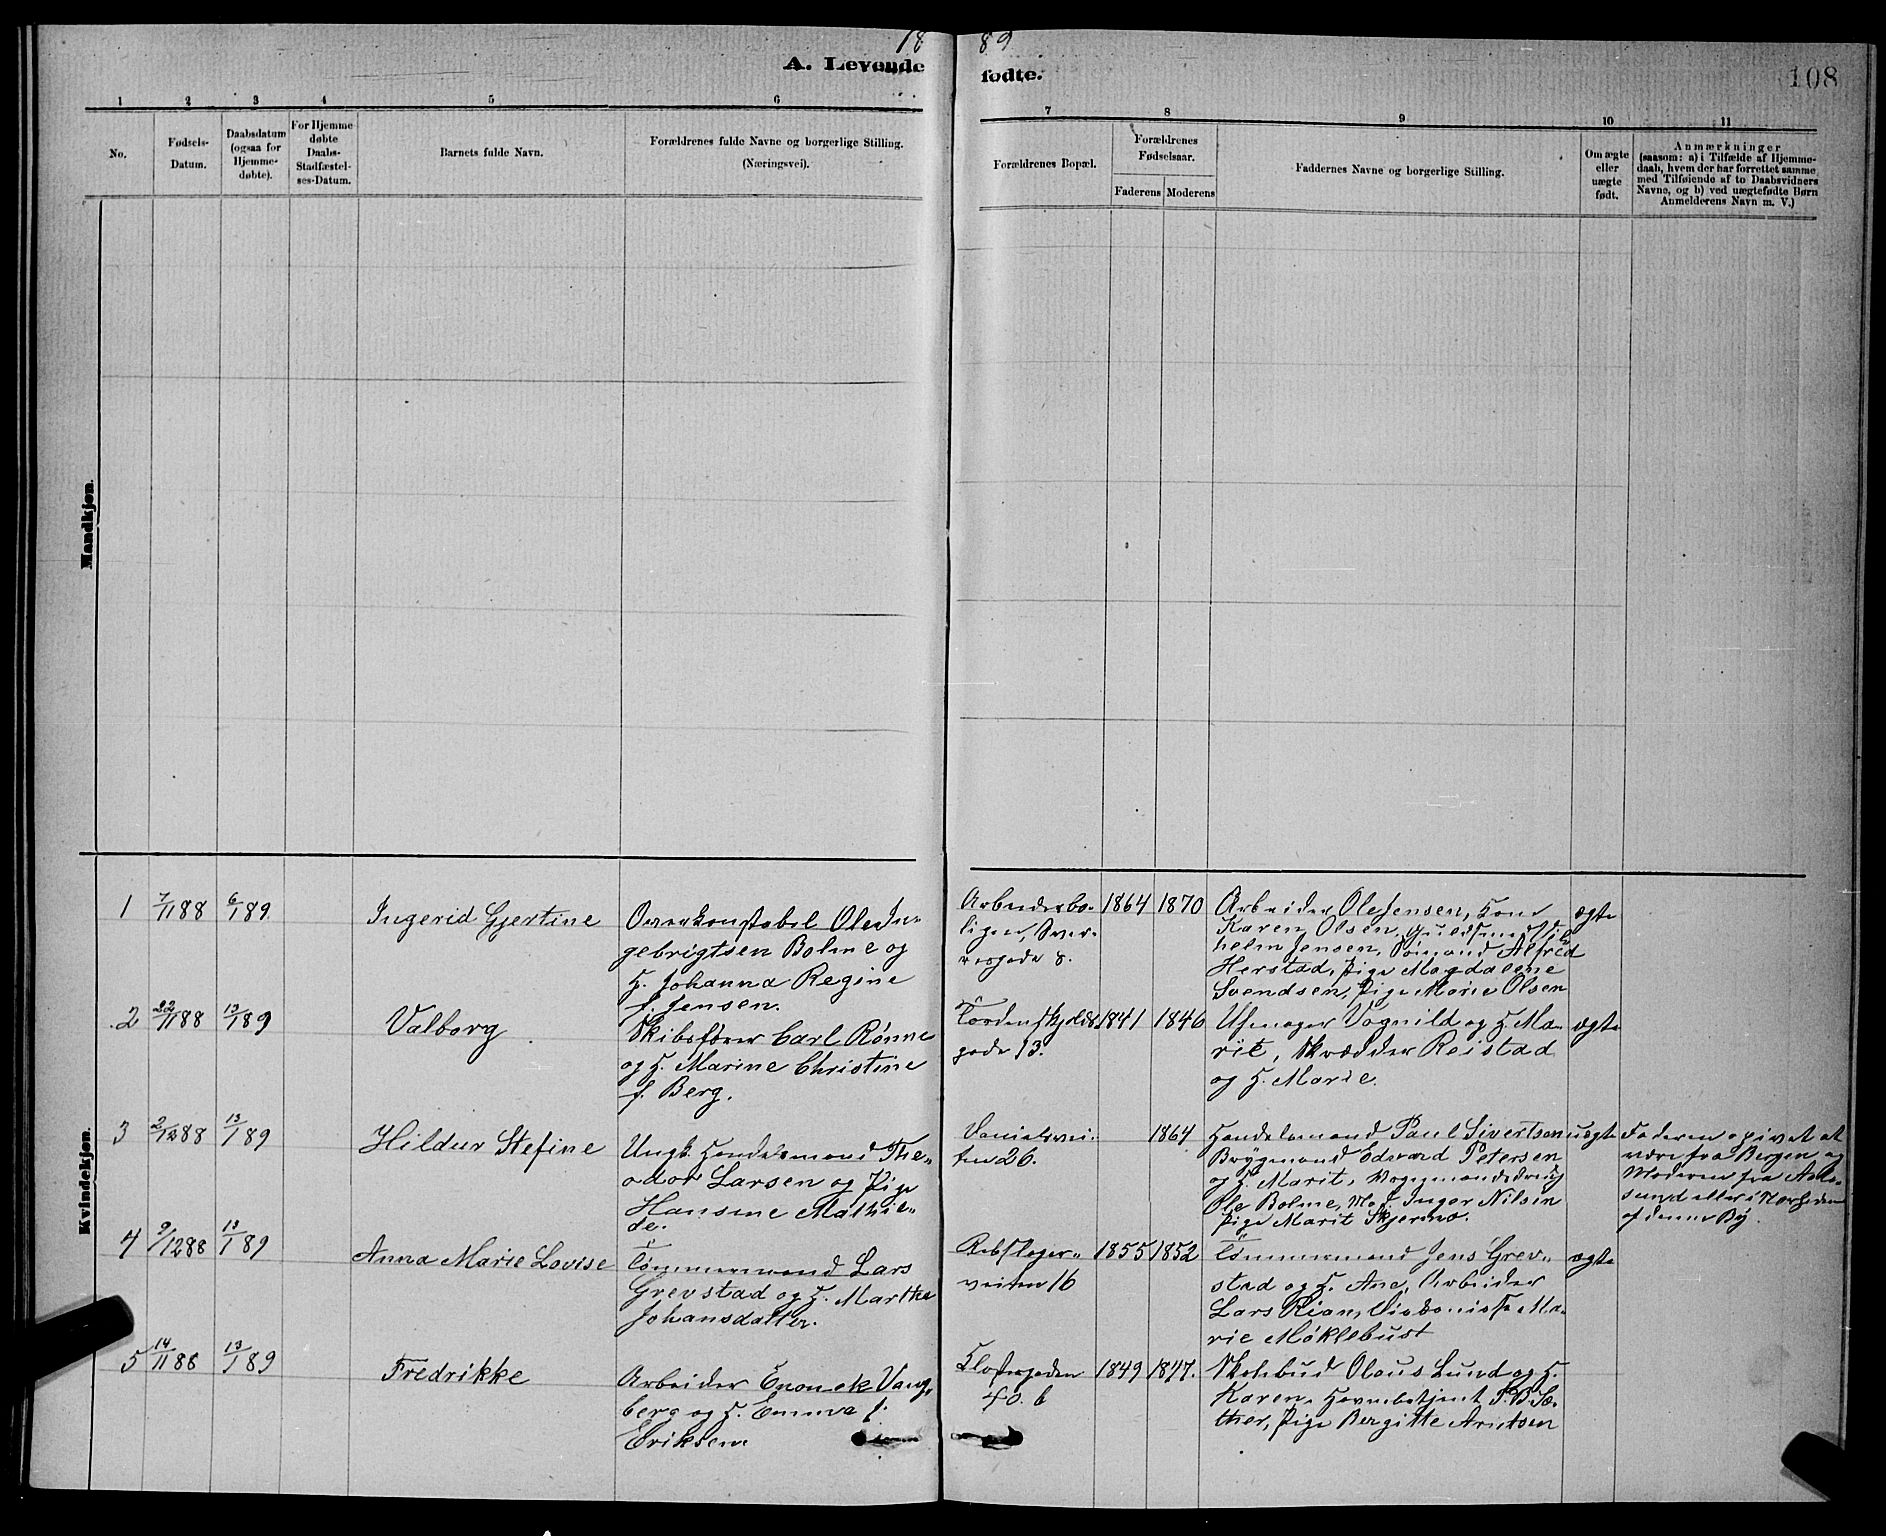 18 89
A. Levende fødte.
108
1 2 3 4 5 6 7 8 9 10 11
No.
Fødsels-
Datum.
Daabsdatum
(ogsaa for
Hjemme-
døbte).
For Hjemme
døbte
Daabs-
Stadfæstel-
ses-Datum.
Barnets fulde Navn.
Forældrenes fulde Navne og borgerlige Stilling.
(Næringsvei).
Forældrenes Bopæl.
Forældrenes
Fødselsaar.
Faderens
Moderens
Faddernes Navne og borgerlige Stilling.
Om ægte
eller
uægte
født.
Anmærkninger
(saasom: a) i Tilfælde af Hjemme-
daab, hvem der har forrettet samme,
med Tilføiende af to Daabsvidners
Navne, og b) ved uægtefødte Børn
Anmelderens Navn m. V.)
Mandkjøn.
Kvindekjøn.
1
7/11 88
6/1 89.
Ingerid Gjertine
Overkonstabel Ole In-
gebrigtsen Bolme og
H. Johanna Regine
f. Jensen.
Arbeiderbo-
ligen,
gade 8.
1864
1870
Arbeider Ole Jensen, Kone
Karen Olsen, Guldsmed Vil
helm Jensen, Sømand Alfred
Herstad, Pige Magdalene
Svendsen, Pige Marie Olsen
ægte
2
22/11 88
13/1 89
Valborg
Skibsfører Carl Rønne
og H. Marine Christine
f. Berg.
Tordenskjolds
gade 13.
1841
1846
Urmager Vognild og H. Ma-
rie, Skrædder Reistad
og H. Marie.
ægte
3
2/12 88
13/1 89
Hildur Stefine
Ungk. Handelsmand The-
odor Larsen og Pige
Hansine Mathil-
de.
Danielsvei-
ten 26.
1864
Handelsmand Paul Sivertsen
Brygmand Edvard Petersen
og H. Marit, Vognmandsdreng
Ole Bolme, Mad. Inger Nilsen
Pige Marit Skjermo.
uægte
Faderen opgivet at
være fra Bergen og
Moderen fra Aale-
sund eller i Nærheden
af denne By.
4
9/12 88
13/1 89
Anna Marie Lovise
Tømmermand Lars
Grevstad og H. Martha
Johansdatter.
Rebslager-
veiten 16
1855
1852
Tømmermand Jens Grev-
stad og H. Ane, Arbeider
Lars Rian, Ma-
rie Møklebust
ægte
5
14/11 88
13/1 89
Fredrikke
Arbeider Enok Vang-
berg og H. Emma f.
Eriksen
Klostergaden
40. b
1849
1847.
Skolebud Olaus Lund og H.
Karen, Havnebetjent P. B. Sæ-
ther, Pige Bergitte Arntsen